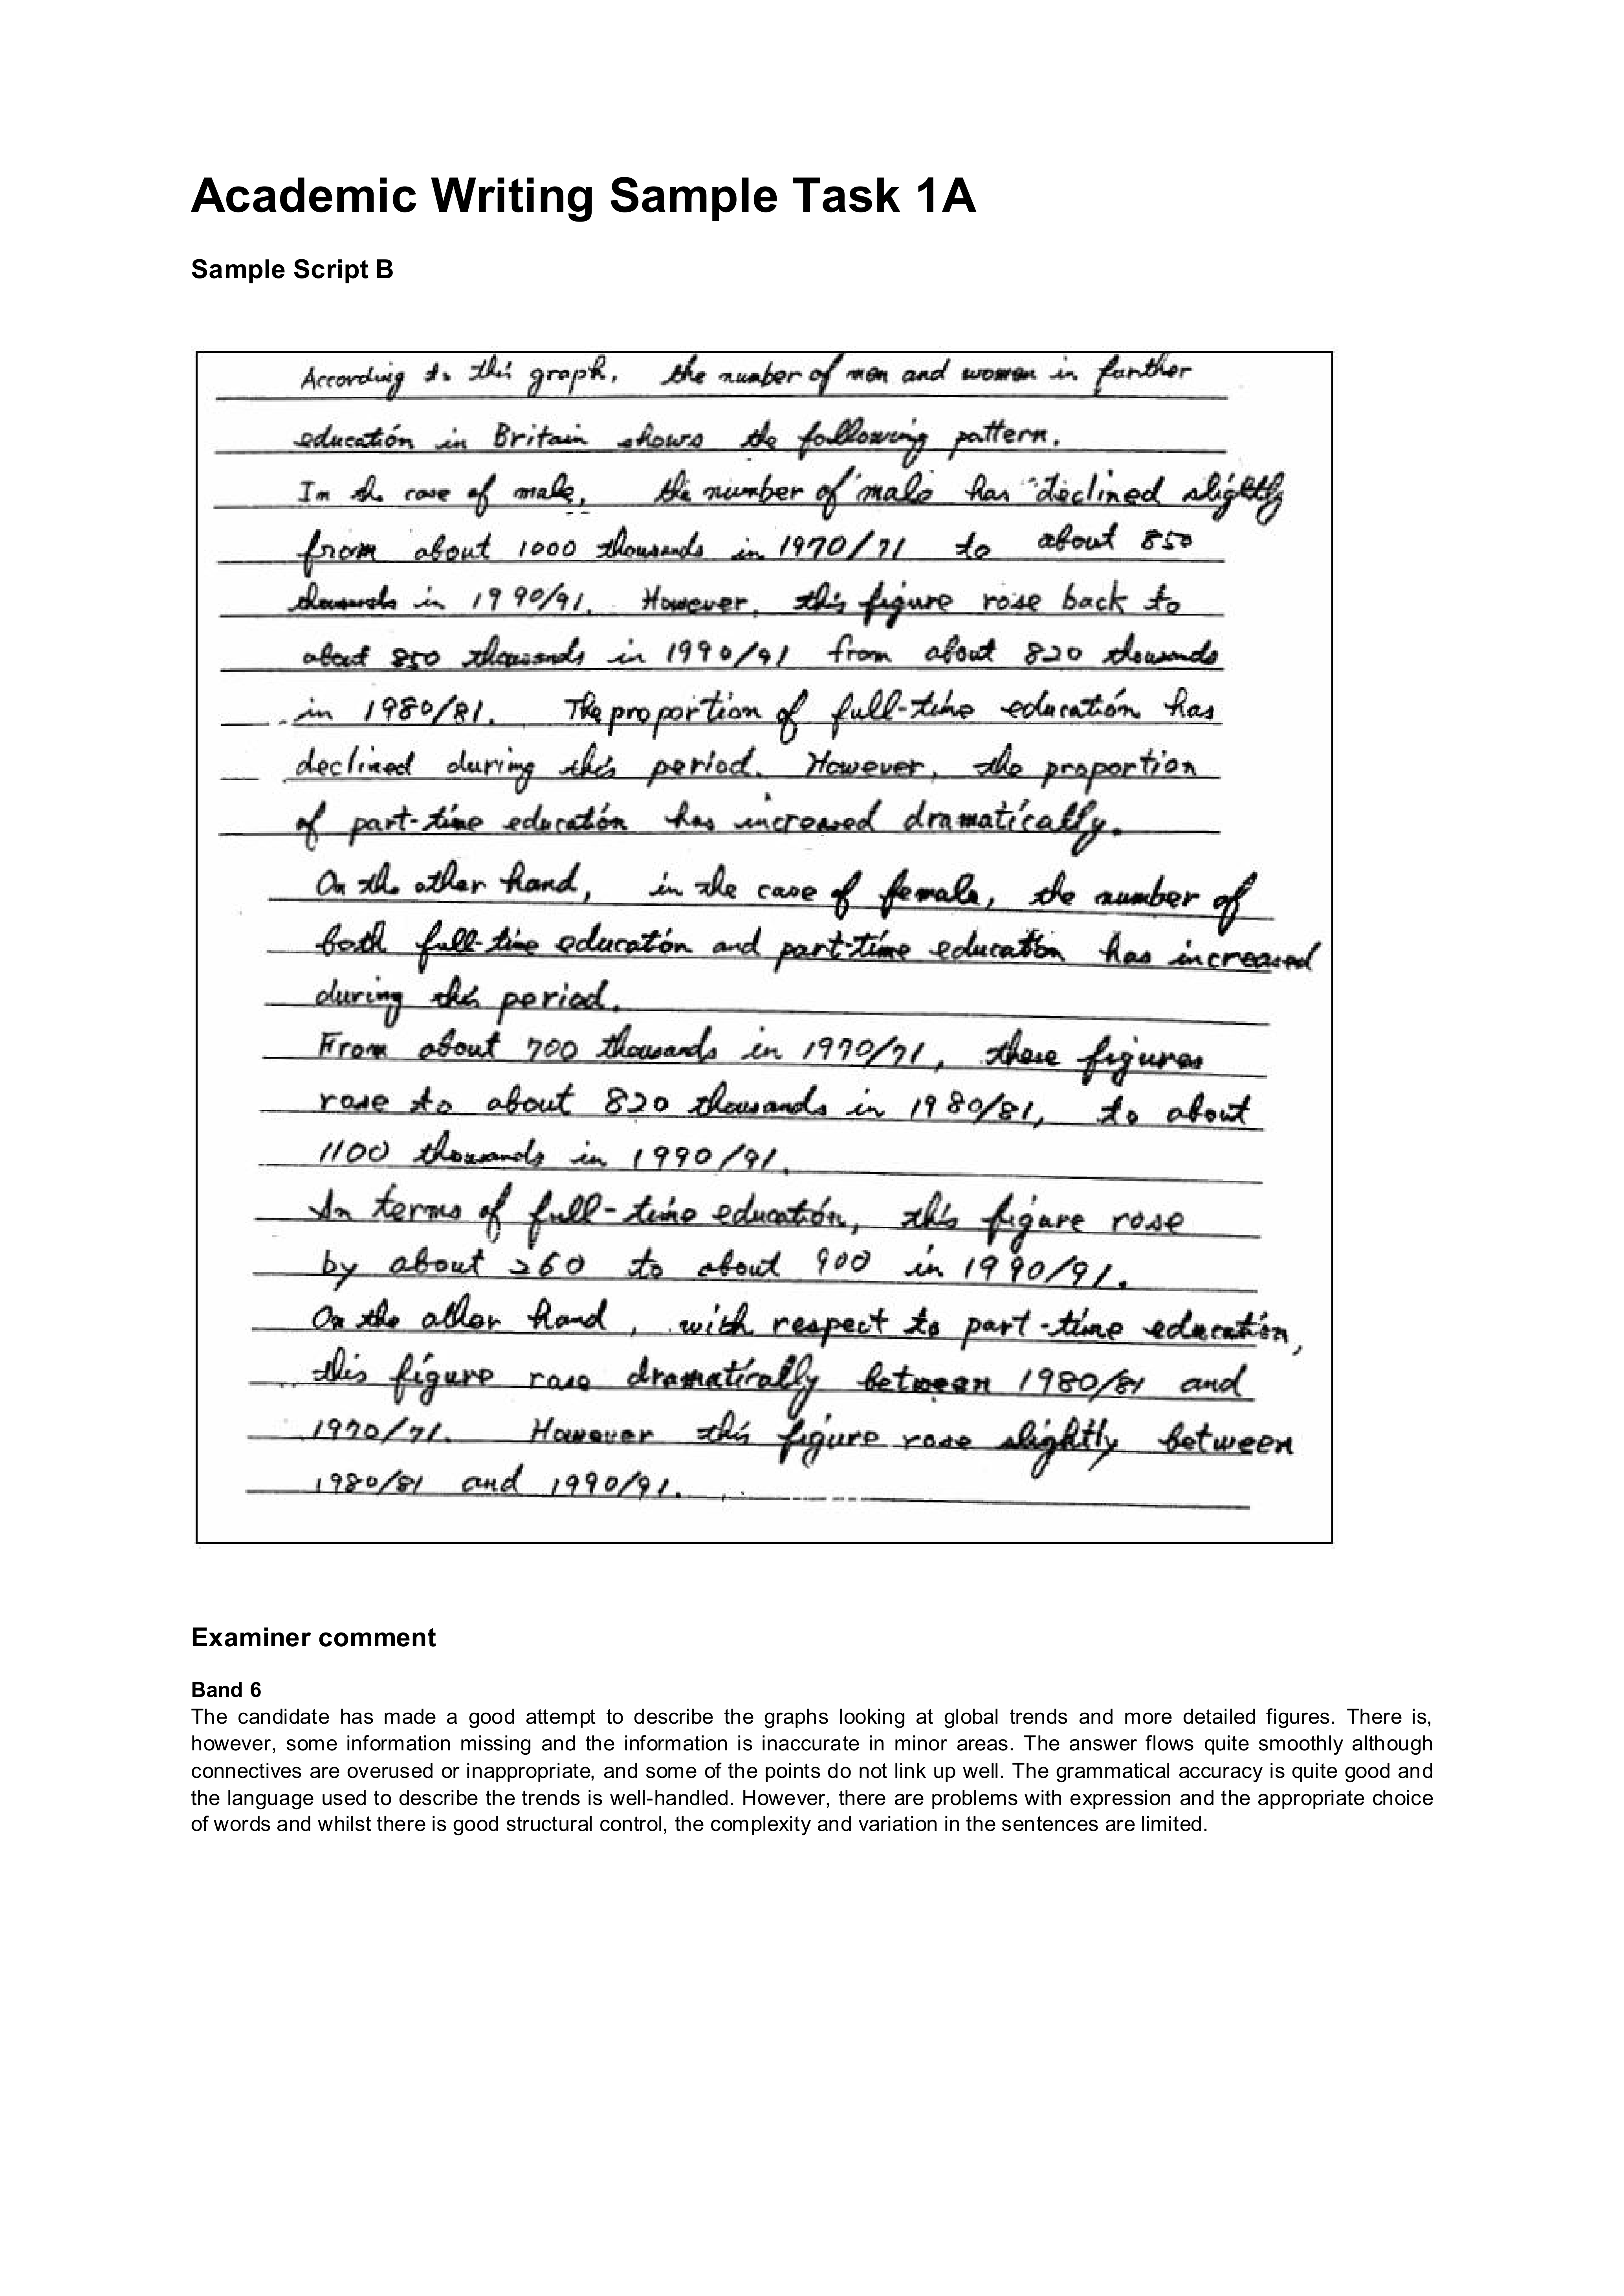 Academic Writing Sample Task 1A
Sample Script B
According to this graph, the number of men and women in farther
education in Britain shows the following pattern.
In the case of male, the number of male has declined slightly
from about 1000 thousands in 1970/71 to about 850
thousands in 1990/91. However, this figure rose back to
about 850 thousands in 1990/91 from about 820 thousands
in 1980/81. The proportion of full-time education has
declined during this period. However, the proportion
of part-time education has increased dramatically.
On the other hand, in the case of female, the number of
both full-time education and part-time education has increased
during this period.
From about 700 thousands in 1970/71, these figures
rose to about 820 thousands in 1980/81, to about
1100 thousands in 1990/91.
In terms of full-time education, this figure rose
by about 260 to about 900 in 1990/91.
On the other hand, with respect to part-time education,
this figure rose dramatically between 1980/81 and
1970/71. However this figure rose slightly between
1980/81 and 1990/91.
Examiner comment
Band 6
The candidate has made a good attempt to describe the graphs looking at global trends and more detailed figures. There is,
however, some information missing and the information is inaccurate in minor areas. The answer flows quite smoothly although
connectives are overused or inappropriate, and some of the points do not link up well. The grammatical accuracy is quite good and
the language used to describe the trends is well-handled. However, there are problems with expression and the appropriate choice
of words and whilst there is good structural control, the complexity and variation in the sentences are limited.